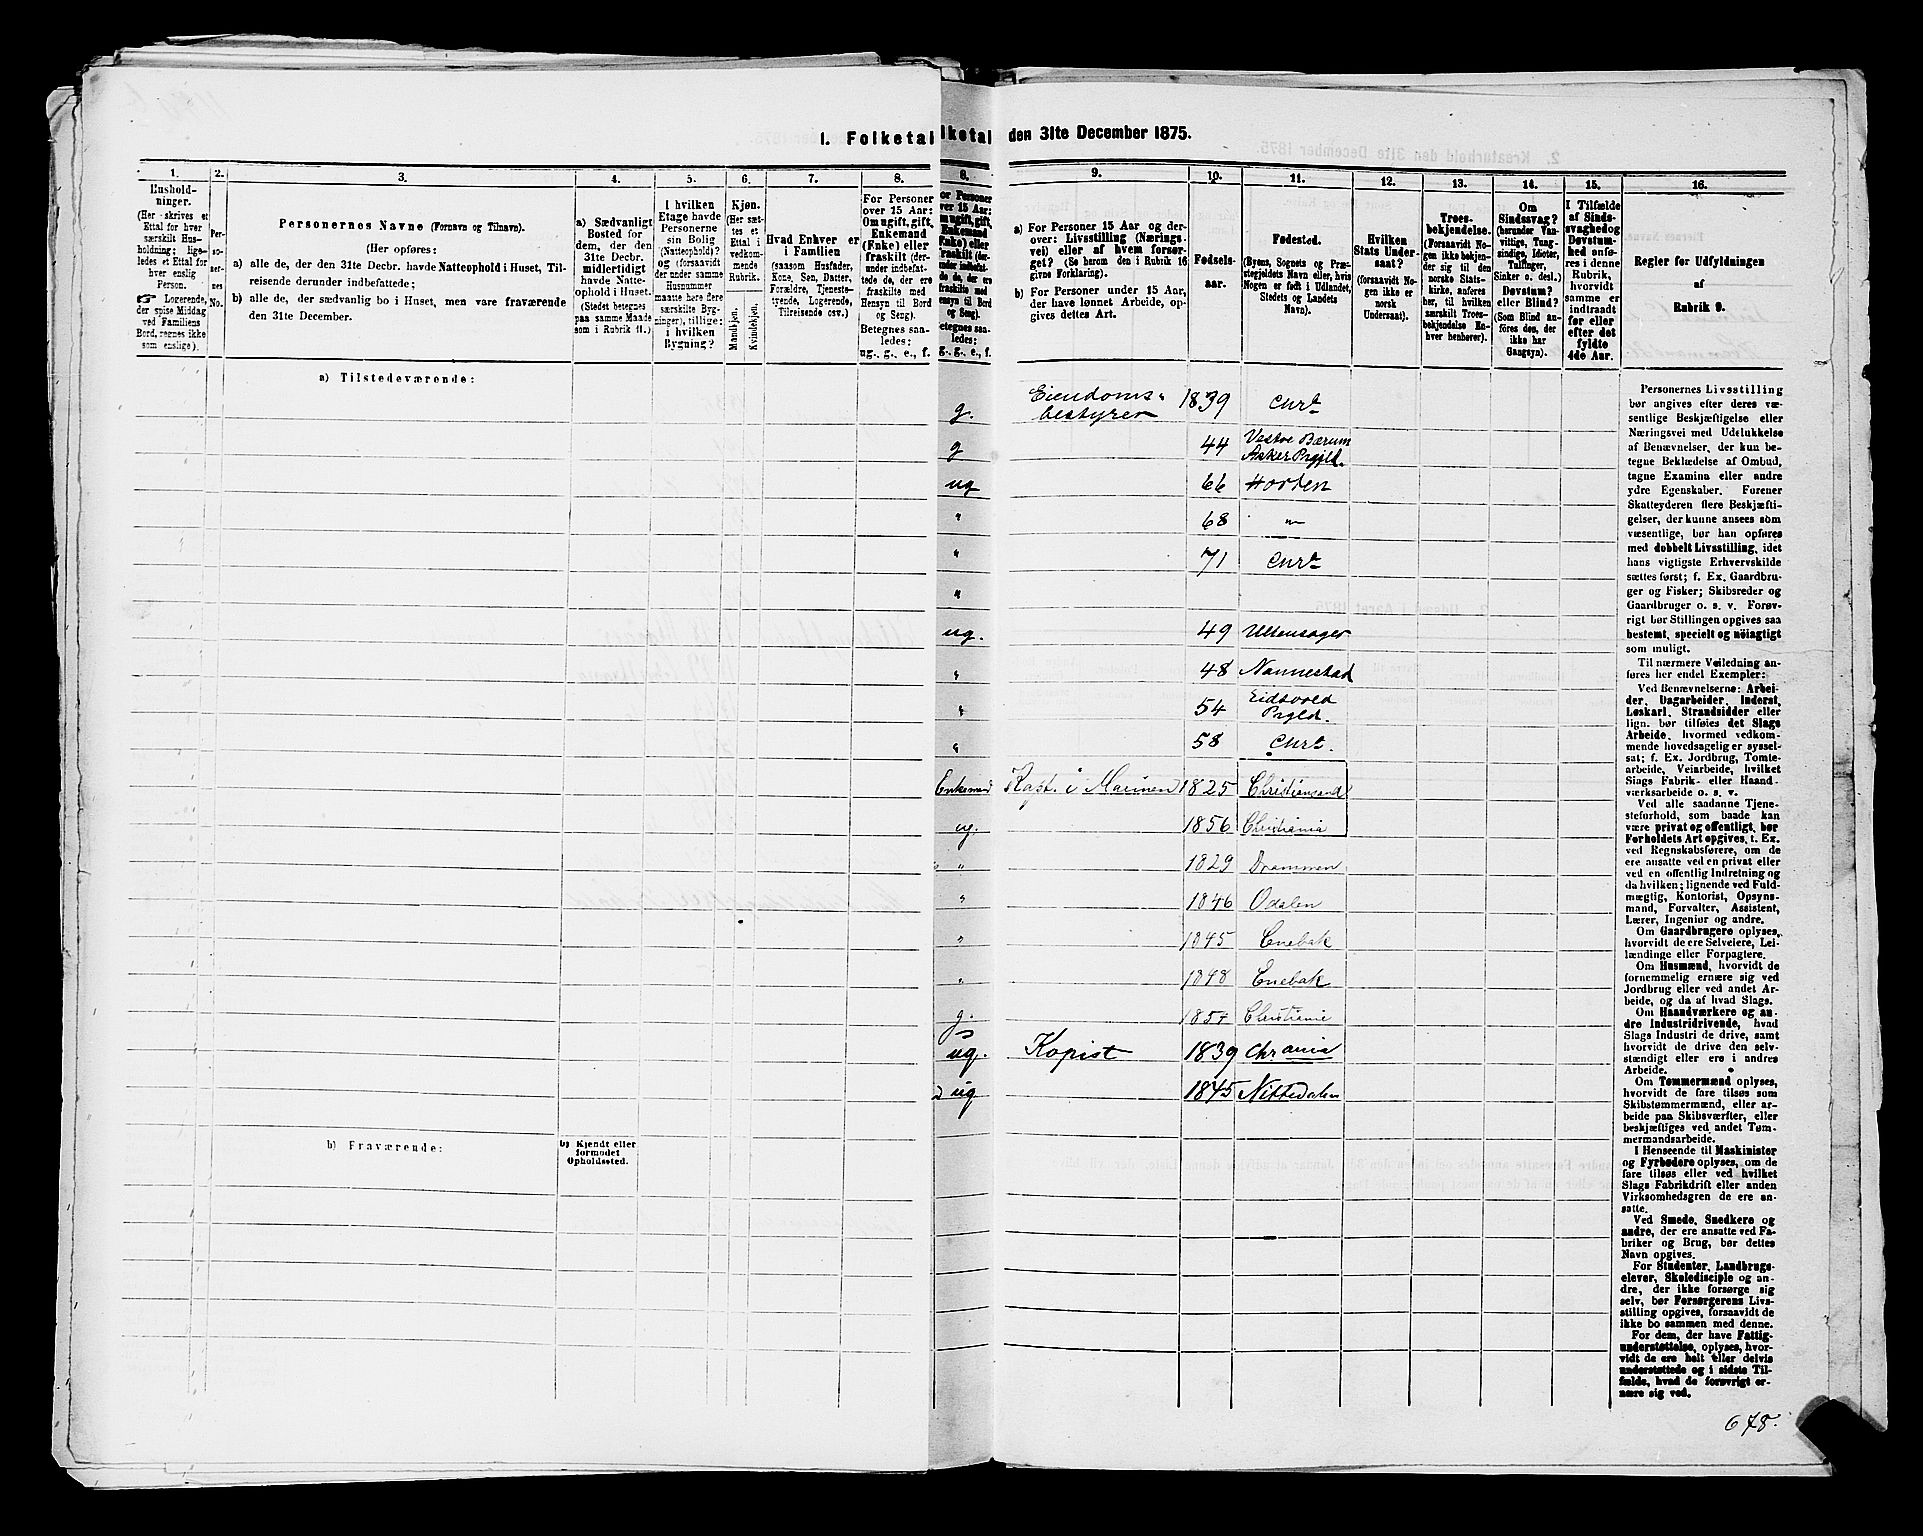 I. Folketal
lketal den 31te December 1875.
1.
Hushold-
ninger.
(Her skrives et
Ettal for hver
særskilt Hus-
holdning; lige-
ledes et Ettal for
hver enslig
Person.
☞ Logerende,
der spise Middag
ved Familiens
Bord, regnes ikke
som enslige).
2.
Per-
so-
ner-
nes
No.
3.
Personernes Navne (Fornavn og Tilnavn).
(Her opføres:
a) alle de, der den 31te Decbr. havde Natteophold i Huset, Til-
reisende derunder indbefattede;
b) alle de, der sædvanlig bo i Huset, men vare fraværende
den 31te December.
4.
a) Sædvanligt
Bosted for
dem, der den
31te Decbr.
midlertidigt
havde Natte-
ophold i Huset.
(Stedet betegnes
paa samme Maade
som i Rubrik 11.)
5.
I hvilken
Etage havde
Personerne
sin Bolig
(Natteophold)?
og (forsaavidt
der under samme
Husnummer
maatte høre flere
særskilte Byg-
ninger), tillige:
i hvilken
Bygning?
6.
Kjøn.
(Her sæt-
tes et
Ettal i
vedkom-
mende
Rubrik.
Mandkjøn.
Kvindekjøn.
7.
Hvad Enhver er
i Familien
(saasom Husfader,
Kone, Søn, Datter,
Forældre, Tjeneste-
tyende, Logerende,
Tilreisende osv.)
8.
For Personer
over 15 Aar:
Om ugift, gift,
Enkemand
(Enke) eller
fraskilt (der-
under indbefat-
tede de, der ere
fraskilte med
Hensyn til Bord
og Seng).
Betegnes saa-
ledes:
ug., g., e., f.
8.
or Personer
ver 15 Aar:
m ugift, gift,
Enkemand
(Enke) eller
fraskilt (der-
under indbefat-
tede de, der ere
fraskilte med
ensyn til Bord
og Seng).
Betegnes saa-
ledes:
g., g., e., f.
9.
a) For Personer 15 Aar og der-
over: Livsstilling (Nærings-
vei) eller af hvem forsør-
get? (Se herom den i Rubrik 16
givne Forklaring).
b) For Personer under 15 Aar,
der have lønnet Arbeide, op-
gives dettes Art.
10.
Fødsels-
aar.
11.
Fødested.
(Byens, Sognets og Præ-
stegjeldets Navn eller, hvis
Nogen er født i Udlandet,
Stedets og Landets
Navn).
12.
Hvilken
Stats Under-
saat?
(forsaavidt No-
gen ikke er
norsk
Undersaat).
13.
Troes-
bekjendelse.
(Forsaavidt No-
gen ikke bekjen-
der sig til den
norske Stats-
kirke, anføres
her, til hvilken
særskilt Troes-
bekjendelse En-
hver henhører).
14.
Om
Sindssvag?
(herunder Van-
vittige, Tung-
sindige, Idioter,
Tullinger,
Sinker o. desl.)
Døvstum?
eller Blind?
(Som Blind an-
føres den, der
ikke har
Gangsyn).
15.
I Tilfælde
af Sinds-
svaghed og
Døvstum-
hed anfø-
res i denne
Rubrik,
hvorvidt
samme er
indtraadt
før eller
efter det
fyldte
4de Aar.
16.
Regler for Udfyldningen
af
Rubrik 9.
a) Tilstedeværende:
g. Eiendoms- 1839 Chra
bestyrer
g 44 Vestre Bærum
Asker Prgjld.
ug 66 Horten
" 68 "
" 71 Chra
"
ug. 49 Ullensager
" 48 Nannestad
" 54 Eidsvold
Prgld.
" 58 Chra.
Enkemand Kapt. i Marinen 1825 Christiansand
ug. 1856 Christiania
" 1829 Drammen
" 1846 Odalen
" 1845 Enebak
" 1848 Enebak
g. 1854 Christiania
ug. Kopist 1839 Chrania
ug 1845 Nittedalen
b) Fraværende:
b) Kjendt eller
formodet
Opholdssted.
Personernes Livsstilling
bør angives efter deres væ-
sentlige Beskjæftigelse eller
Næringsvei med Udelukkelse
af Benævnelser, der kun be-
tegne Beklædelse af Ombud,
tagne Examina eller andre
ydre Egenskaber. Forener
Skatteyderen flere Beskjæfti-
gelser, der kunne ansees som
væsentlige, bør han opføres
med dobbelt Livsstilling, idet
hans vigtigste Erhvervskilde
sættes først; f. Ex. Gaardbru-
ger og Fisker; Skibsreder og
Gaardbruger o. s. v. Forøv-
rigt bør Stillingen opgives saa
bestemt, specielt og nøiagtigt
som muligt.
Til nærmere Veiledning an-
føres her endel Exempler:
Ved Benævnelserne: Arbei-
der, Dagarbeider, Inderst,
Løskarl, Strandsidder eller
lign. bør tilføies det Slags
Arbeide, hvormed vedkom-
mende hovedsagelig er syssel-
sat; f. Ex. Jordbrug, Tomte-
arbeide, Veiarbeide, hvilket
Slags Fabrik- eller Haand-
værksarbeide o. s. v.
Ved alle saadanne Tjene-
steforhold, som baade kan
være privat og offentligt, bør
Forholdets Art opgives, t. Ex.
ved Regnskabsførere, om de
ere ansatte ved en privat eller
ved en offentlig Indretning og
da hvilken; lignende ved Fuld-
mægtig, Kontorist, Opsyns-
mand, Forvalter, Assistent,
Lærer, Ingeniør og andre.
Om Gaardbrugere oplyses,
hvorvidt de ere Selveiere, Lei-
lændinge eller Forpagtere.
Om Husmænd, hvorvidt de
fornemmelig ernære sig ved
Jordbrug eller ved andet Ar-
beide, og da af hvad Slags.
Om Haandværkere og an-
dre Industridrivende, hvad
Slags Industri de drive, samt
hvorvidt de drive den selv-
stændigt eller ere i andres
Arbeide.
Om Tømmermænd oplyses,
hvorvidt de fare tilsøs som
Skibstømmermænd, eller ar-
beide paa Skibsværfter, eller
beskjæftiges ved andet Tøm-
mermandsarbeide.
I Henseende til Maskinister
og Fyrbødere oplyses, om de
fare tilsøs eller ved hvilket
Slags Fabrikdrift eller anden
Virksomhedsgren de ere an-
satte.
Ved Smede, Snedkere og
andre, der ere ansatte ved Fa-
briker og Brug, bør dettes
Navn opgives.
For Studenter, Landbrugs-
elever, Skoledisciple og an-
dre, der ikke forsørge sig
selv, bør Forsørgerens Livs-
stilling opgives, forsaavidt de
ikke bo sammen med denne.
For dem, der have Fattig-
understøttelse, oplyses, hvor-
vidt de ere helt eller delvis
understøttede og i sidste Til-
fælde, hvad de forøvrigt er-
nære sig ved.
678.